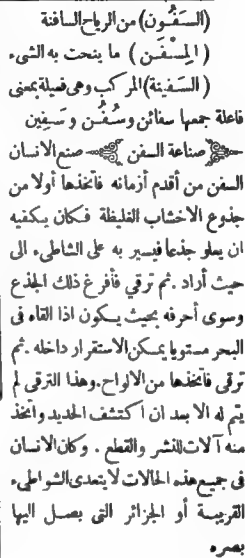 (السَفُون) من الرياح السافنة
(المِسْفَن) ما ينحت به الشيء
(السَفينة) المركب وهى فعيلة بمعنى
فاعلة جمعها سفائن وسُفُن وسَفِين
صناعة السفن صنع الانسان
السفن من أقدم أزمانه فاتخذها أولا من
جذوع الاخشاب الغليظة فكان يكفيه
ان يعلو جذعا فيسير به على الشاطىء الى
حيث أراد. ثم ترقي فأفرغ ذلك الجذع
وسوى أحرفه بحيث يكون اذا القاه فى
البحر مستويا يمكن الاستقرار داخله. ثم
ترقى فاتخذها من الالواح. وهذا الترقي لم
يتم له الا بعد ان اكتشف الحديد واتخذ
منه آلات للنشر والقطع. وكان الانسان
فى جميع هذه الحالات لا يتعدى الشواطىء
القريبة أو الجزائر التى يصل اليها
بصره